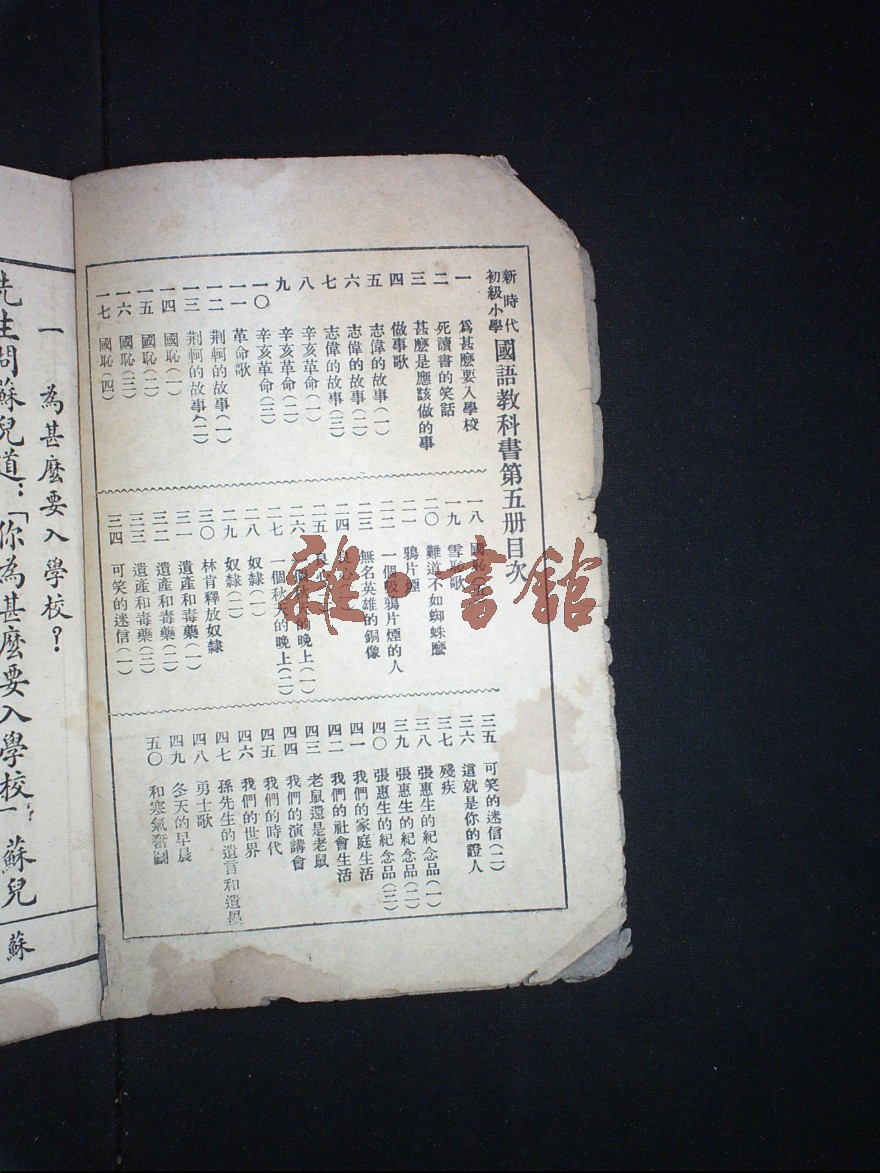 新時代
初級小學
國語教科書第五册目次
一 爲甚麽要入學校
二 死讀書的笑話
三 甚麽是應該做的事
四 做事歌
五 志偉的故事(一)
六 志偉的故事(二)
七 志偉的故事(三)
八 辛亥革命(一)
九 辛亥革命(二)
一〇 辛亥革命(三)
一一 革命歌
一二 荆軻的故事(一)
一三 荆軻的故事(二)
一四 國恥(一)
一五 國恥(二)
一六 國恥(三)
一七 國恥(四)
一八 國恥(五)
一九 雪恥歌
二〇 難道不如蜘蛛麽
二一 鴉片煙
二二 一個吸鴉片煙的人
二三 無名英雄的銅像
二四 良心(一)
二五 良心(二)
二六 一個秋天的晚上(一)
二七 一個秋天的晚上(二)
二八 奴隸(一)
二九 奴隸(二)
三〇 林肯釋放奴隸
三一 遺產和毒藥(一)
三二 遺產和毒藥(二)
三三 遺產和毒藥(三)
三四 可笑的迷信(一)
三五 可笑的迷信(二)
三六 這就是你的證人
三七 殘疾
三八 張惠生的紀念品(一)
三九 張惠生的紀念品(二)
四〇 張惠生的紀念品(三)
四一 我們的家庭生活
四二 我們的社會生活
四三 老鼠還是老鼠
四四 我們的演講會
四五 我們的時代
四六 我們的世界
四七 孫先生的遺言和遺墨
四八 勇士歌
四九 冬天的早晨
五〇 和寒氣奮鬭
雜·書館
一 為甚麼要入學校?
先生問蘇兒道:「你為甚麼要入學校?」蘇兒
蘇